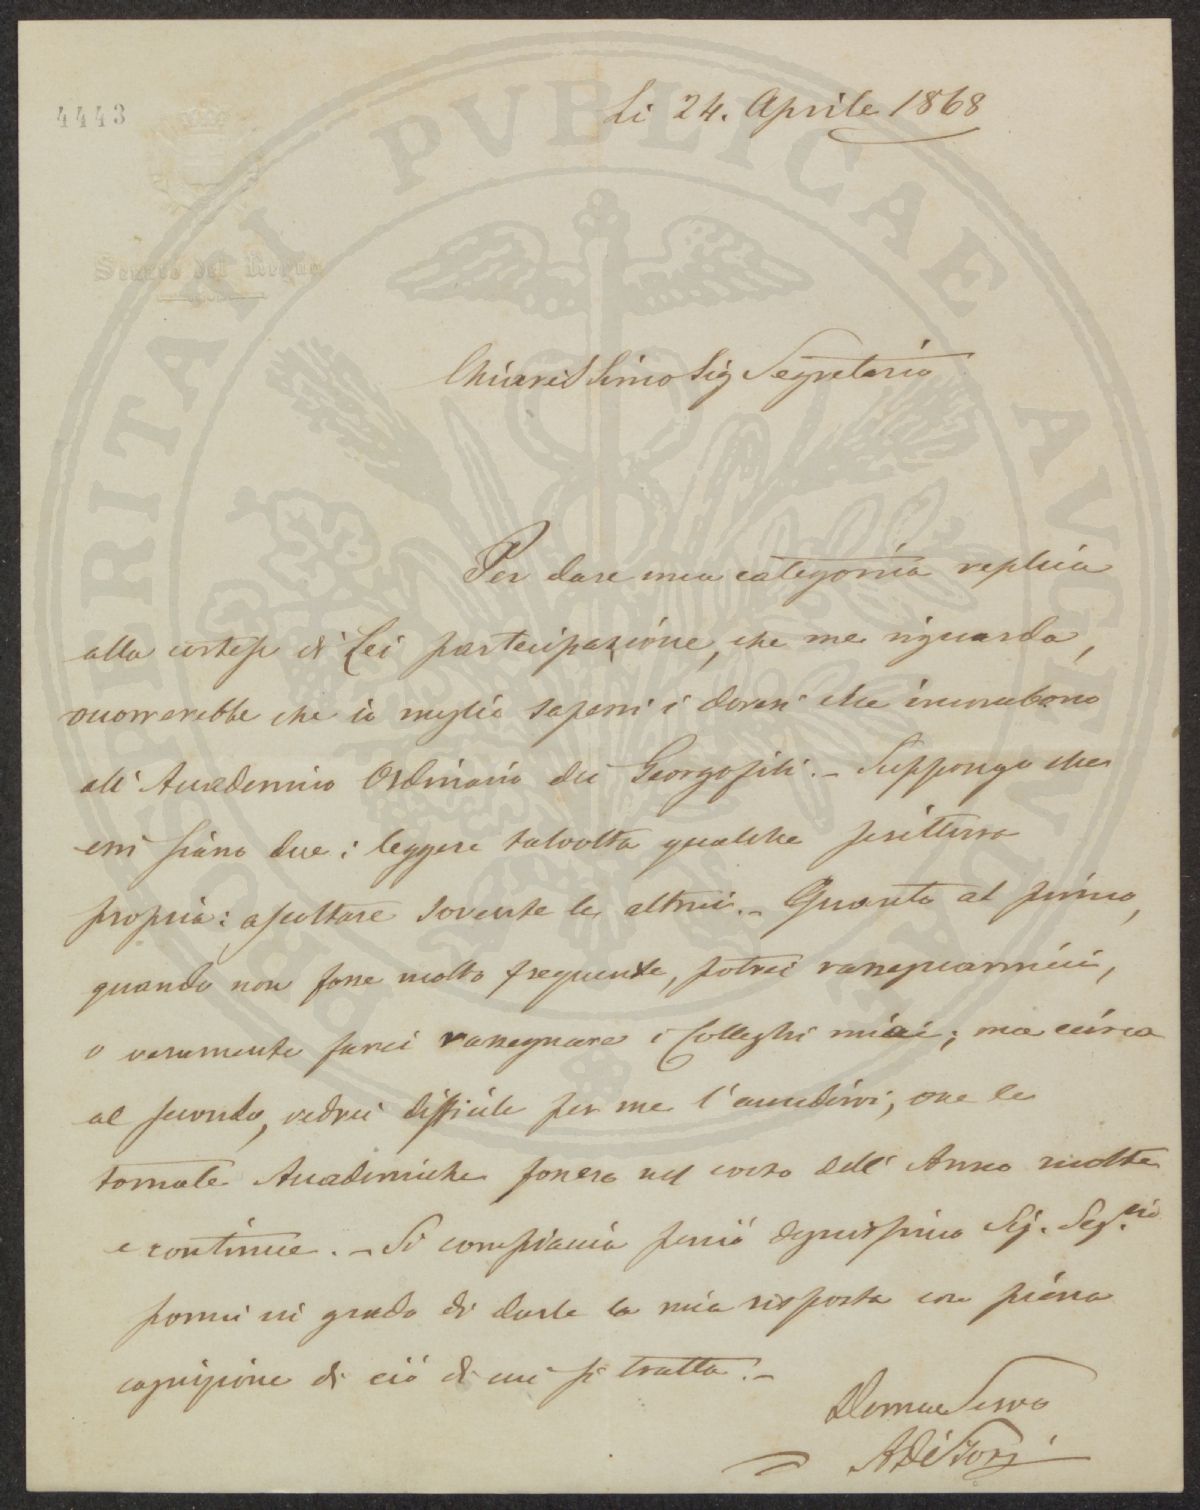 4443
Li 24. Aprile 1868
Senato del Regno
Chiarissimo Sig Segretario
Per dare una categorica replica
alla cortese di Lei partecipazione, che me riguarda,
occorrerebbe che io meglio sapessi i doveri che incumbono
all' Accademico Ordinario dei Georgofili. – Suppongo che
essi siano due: leggere talvolta qualche scrittura
propria: ascoltare sovente le altrui. – Quanto al primo,
quando non fosse molto frequente, potrei rassegnarmici,
o veramente farci rassegnare i Colleghi miei; ma circa
al secondo, vedrei difficile per me l'accudirvi, ove le
tornate Accademiche fossero nel corso dell' Anno molte
e continue. – Si compiaccia perciò degnissimo Sig. Seg.rio
pormi in grado di darle la mia risposta con piena
cognizione di ciò di cui si tratta. –
Servo
PROSPERITATI PVBLICAE AVGENDAE